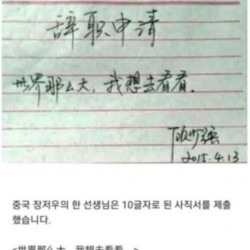 辞职申请
世界那么大，我想去看看.
2015.4.13
중국 장저우의 한 선생님은 10글자로 된 사직서를 제출
했습니다.
<世界那么大，我想去看看。>